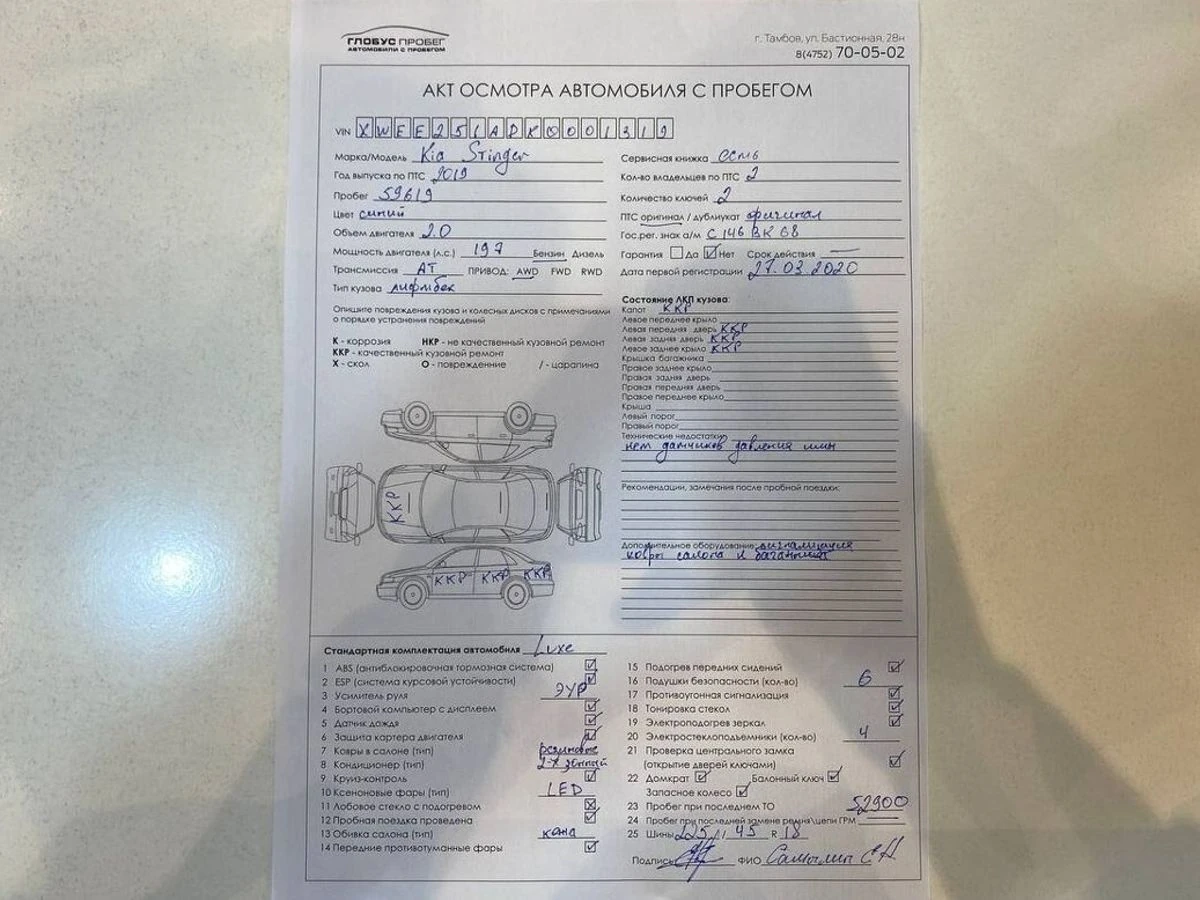 ГЛОБУС ПРОБЕГ
АВТОМОБИЛИ С ПРОБЕГОМ
г. Тамбов, ул. Бастионная, 28н
8(4752) 70-05-02
АКТ ОСМОТРА АВТОМОБИЛЯ С ПРОБЕГОМ
VIN XWEE251ADK0001319
Марка/Модель Kia Stinger
Год выпуска по ПТС 2019
Пробег 59619
Цвет синий
Объем двигателя 2.0
Мощность двигателя (л.с.) 197 Бензин Дизель
Трансмиссия АТ ПРИВОД: AWD FWD RWD
Тип кузова лифтбек
Опишите повреждения кузова и колесных дисков с примечаниями
о порядке устранения повреждений
К - коррозия НКР - не качественный кузовной ремонт
ККР - качественный кузовной ремонт
Х - скол О - повреждение / - царапина
ККР
ККР ККР ККР
Сервисная книжка есть
Кол-во владельцев по ПТС 2
Количество ключей 2
ПТС оригинал / дубликат оригинал
Гос.рег. знак а/м С 146 ВК 68
Гарантия Да Нет Срок действия —
Дата первой регистрации 27.03.2020
Состояние ЛКП кузова:
Капот ККР
Левое переднее крыло
Левая передняя дверь ККР
Левая задняя дверь ККР
Левое заднее крыло ККР
Крышка багажника
Правое заднее крыло
Правая задняя дверь
Правая передняя дверь
Правое переднее крыло
Крыша
Левый порог
Правый порог
Технические недостатки
нет датчиков давления шин
Рекомендации, замечания после пробной поездки:
Дополнительное оборудование сигнализация
ковры салона и багажника
Стандартная комплектация автомобиля Luxe
1 ABS (антиблокировочная тормозная система)
2 ESP (система курсовой устойчивости)
3 Усилитель руля ЭУР
4 Бортовой компьютер с дисплеем
5 Датчик дождя
6 Защита картера двигателя
7 Ковры в салоне (тип) резиновые
8 Кондиционер (тип) 2-х зонный
9 Круиз-контроль
10 Ксеноновые фары (тип) LED
11 Лобовое стекло с подогревом
12 Пробная поездка проведена
13 Обивка салона (тип) кожа
14 Передние противотуманные фары
15 Подогрев передних сидений
16 Подушки безопасности (кол-во) 6
17 Противоугонная сигнализация
18 Тонировка стекол
19 Электроподогрев зеркал
20 Электростеклоподъемники (кол-во) 4
21 Проверка центрального замка
(открытие дверей ключами)
22 Домкрат Балонный ключ
Запасное колесо
23 Пробег при последнем ТО 52900
24 Пробег при последней замене ремня\цепи ГРМ —
25 Шины 225 / 45 R 18
Подпись ФИО Самылин С А